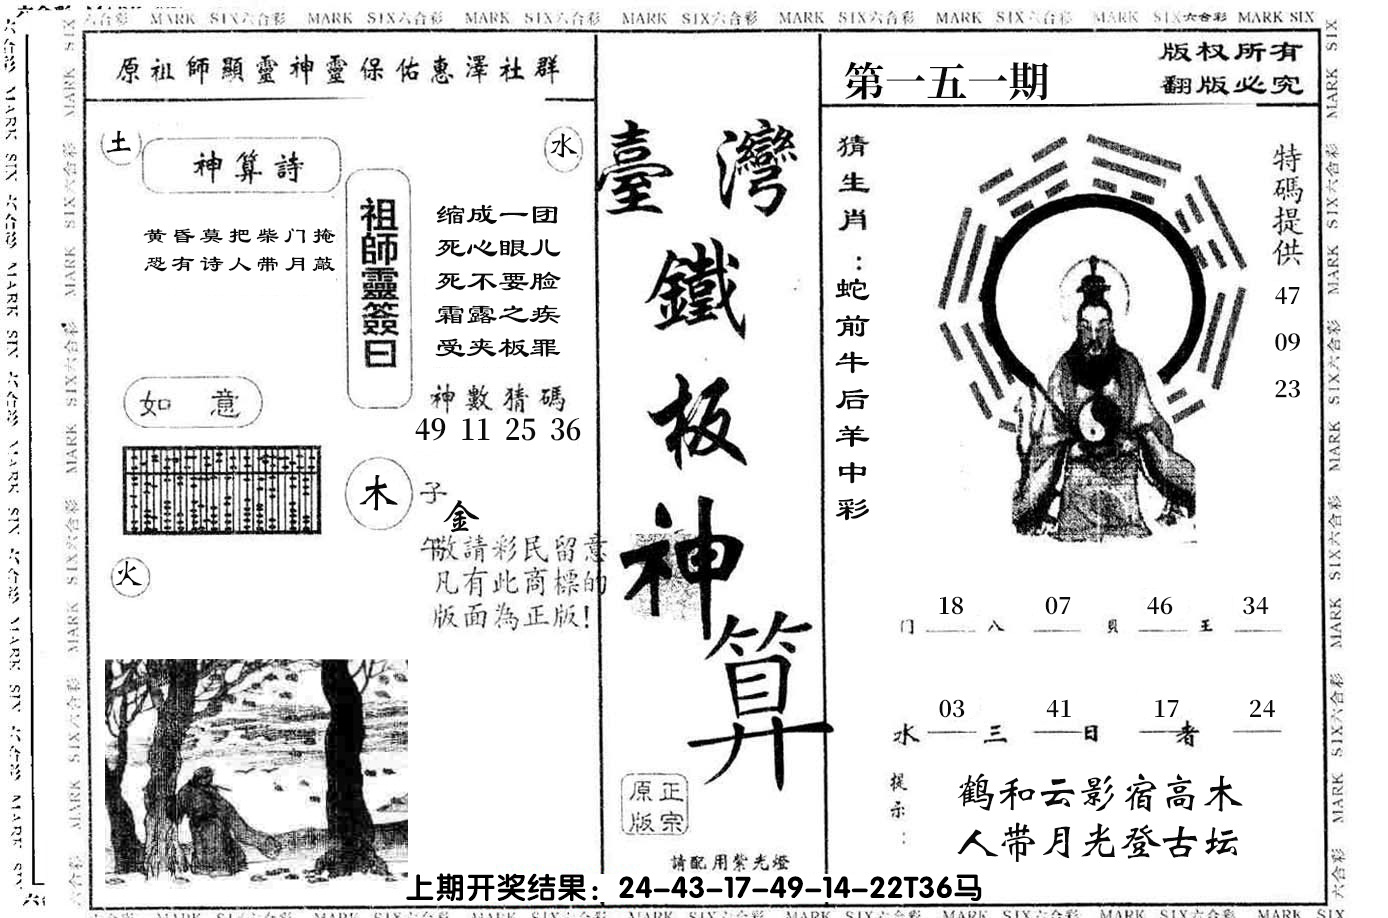 MARK SIX六合彩 MARK SIX六合彩 MARK SIX六合彩 MARK SIX六合彩 MARK SIX六合彩 MARK SIX六合彩 MARK SIX六合彩 MARK SIX
原祖師顯靈神靈保佑惠澤社群
土
神算詩
水
黄昏莫把柴门掩
恐有诗人带月敲
祖師靈簽曰
缩成一团
死心眼儿
死不要脸
霜露之疾
受夹板罪
如 意
神數猜碼
49 11 25 36
木
子
金
午
敬請彩民留意
凡有此商標的
版面為正版!
火
臺灣
鐵
板
神
算
正宗
原版
請配用紫光燈
第一五一期
版权所有
翻版必究
猜生肖:蛇前牛后羊中彩
特碼提供
47
09
23
18 07 46 34
门 八 貝 王
03 41 17 24
水 三 日 者
提示:
鹤和云影宿高木
人带月光登古坛
上期开奖结果：24-43-17-49-14-22T36马